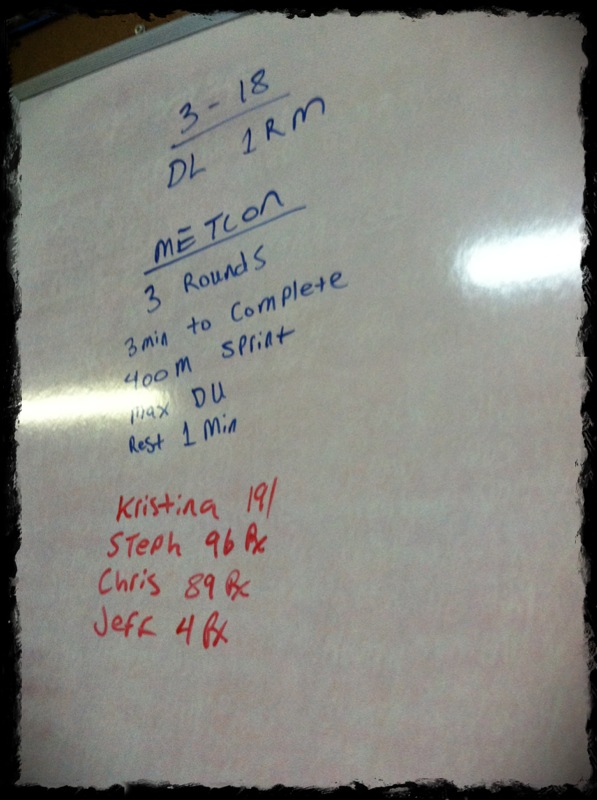 3-18
DL 1RM
METCON
3 Rounds
3min to Complete
400m sprint
max DU
Rest 1 Min
Kristina 191
Steph 96 Rx
Chris 89 Rx
Jeff 4 Rx